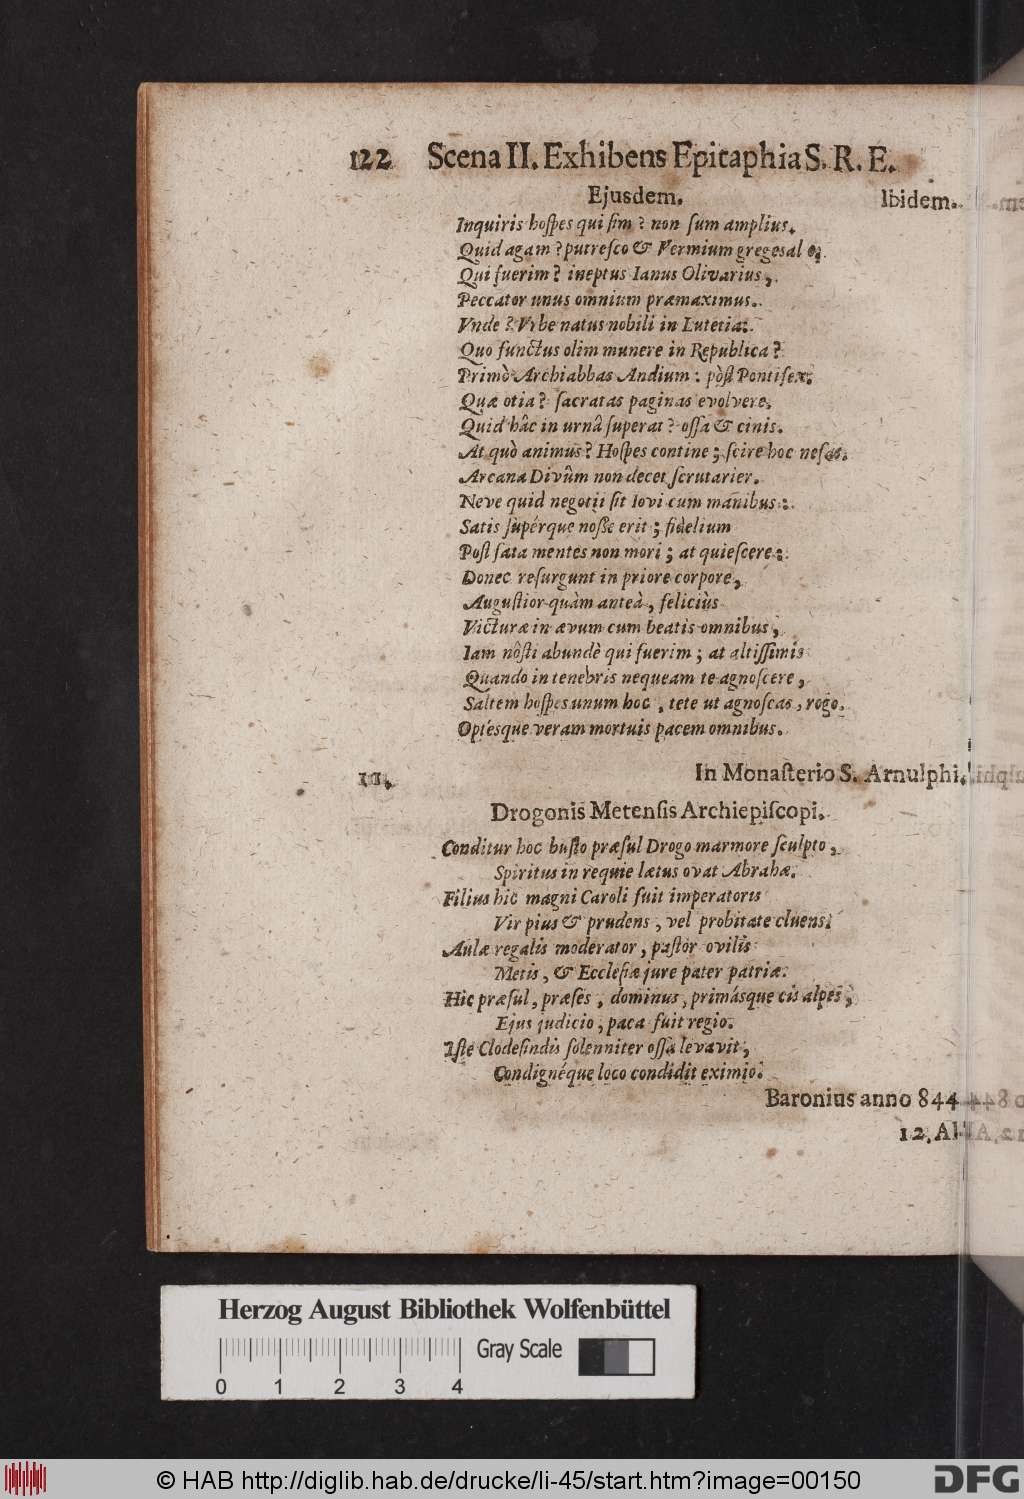 122 Scena II. Exhibens Epitaphia S. R. E.
Ejusdem. Ibidem.
Inquiris hoſpes qui ſim? non ſum amplius.
Quid agam? putreſco & Vermium greges alo;
Qui fuerim? ineptus Ianus Olivarius,
Peccator unus omnium præmaximus.
Vnde? Vrbe natus nobili in Lutetia:
Quo functus olim munere in Republica?
Primò Archiabbas Andium: pòſt Pontifex.
Quæ otia? ſacratas paginas evolvere,
Quid hâc in urnâ ſuperat? oſſa & cinis.
At quò animus? Hoſpes contine; ſcire hoc nefas.
Arcana Divûm non decet ſcrutarier.
Neve quid negotii ſit Iovi cum manibus:
Satis ſupérque noſſe erit; fidelium
Poſt fata mentes non mori; at quieſcere:
Donec reſurgunt in priore corpore,
Auguſtior quàm anteà, feliciùs
Victuræ in ævum cum beatis omnibus,
Iam nôſti abundè qui fuerim; at altiſſimis
Quando in tenebris nequeam te agnoſcere,
Saltem hoſpes unum hoc, tete ut agnoſcas, rogo.
Optésque veram mortuis pacem omnibus.
11. In Monaſterio S. Arnulphi.
Drogonis Metenſis Archiepiſcopi.
Conditur hoc buſto præſul Drogo marmore ſculpto,
Spiritus in requie lætus ovat Abrahæ.
Filius hic magni Caroli fuit imperatoris
Vir pius & prudens, vel probitate cluens:
Aulæ regalis moderator, paſtor ovilis
Metis, & Eccleſiæ jure pater patriæ.
Hic præſul, præſes, dominus, primásque cis alpes,
Ejus judicio, paca fuit regio.
Iſte Clodeſindis ſolenniter oſſa levavit,
Condignéque loco condidit eximio.
Baronius anno 844
12. Al
Herzog August Bibliothek Wolfenbüttel
Gray Scale
0 1 2 3 4
© HAB http://diglib.hab.de/drucke/li-45/start.htm?image=00150 DFG